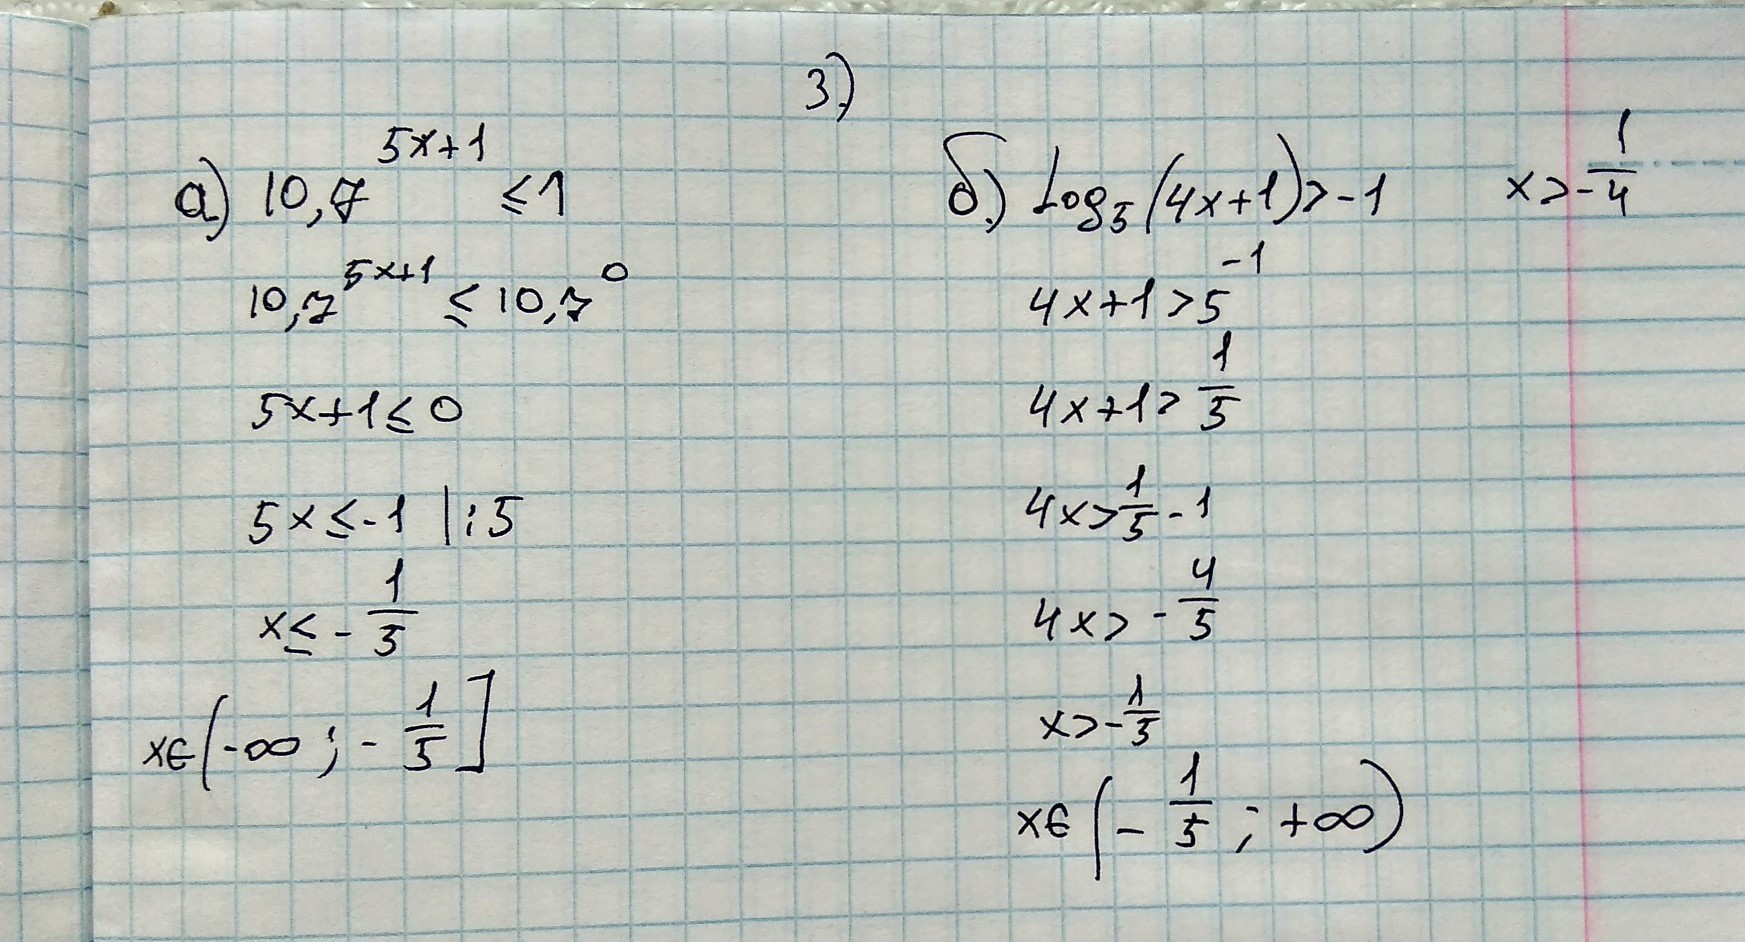 3.)
а.) 10,7^{5x+1} ≤ 1
10,7^{5x+1} ≤ 10,7^0
5x+1 ≤ 0
5x ≤ -1 |:5
x ≤ -1/5
x∈(-∞; -1/5]
б.) Log_5(4x+1) > -1 x > -1/4
4x+1 > 5^{-1}
4x+1 > 1/5
4x > 1/5 - 1
4x > -4/5
x > -1/5
x∈(-1/5; +∞)